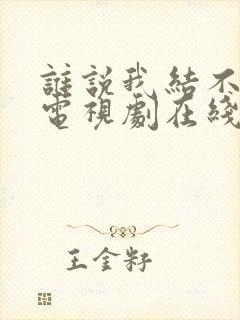 誰説我結不
電視劇在綫
王金籽